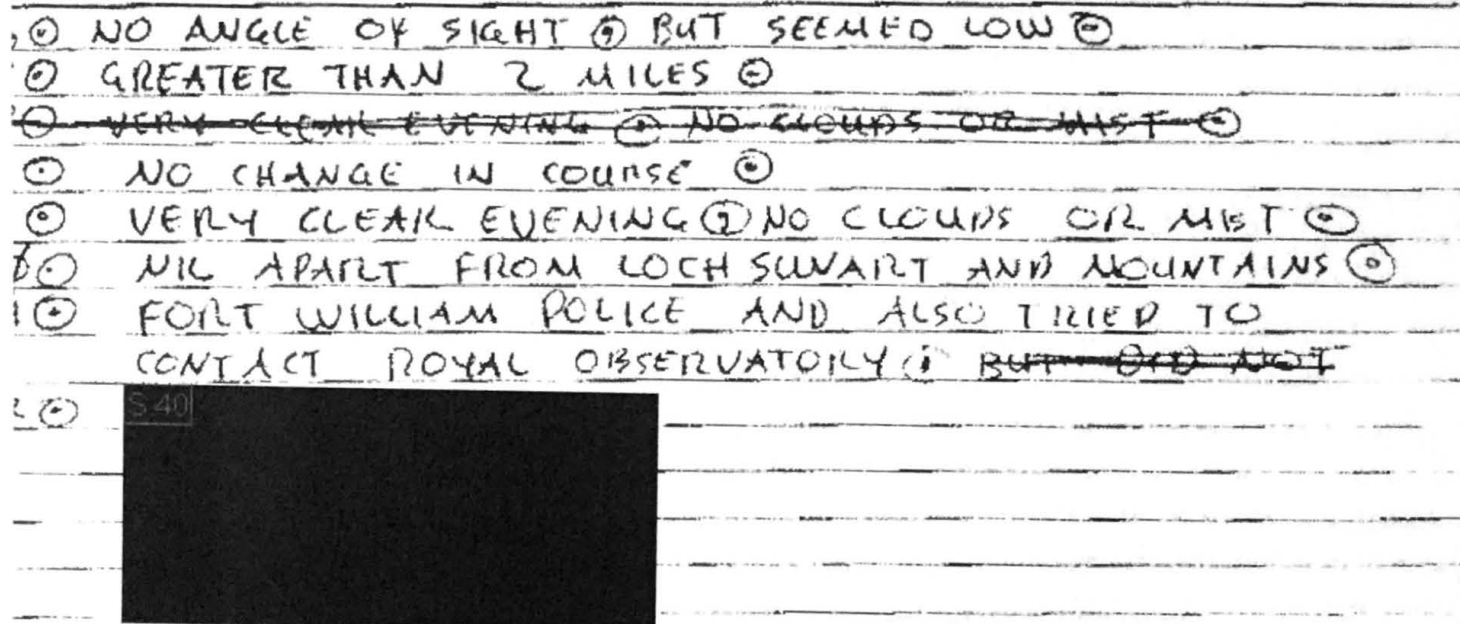 ⊙ NO ANGLE OF SIGHT , BUT SEEMED LOW ⊙
⊙ GREATER THAN 2 MILES ⊙
⊙ VERY CLEAR EVENING ⊙ NO CLOUDS OR MIST ⊙
⊙ NO CHANGE IN COURSE ⊙
⊙ VERY CLEAR EVENING , NO CLOUDS OR MIST ⊙
⊙ NIL APART FROM LOCH SUNART AND MOUNTAINS ⊙
⊙ FORT WILLIAM POLICE AND ALSO TRIED TO
CONTACT ROYAL OBSERVATORY BUT DID NOT
⊙ S 40